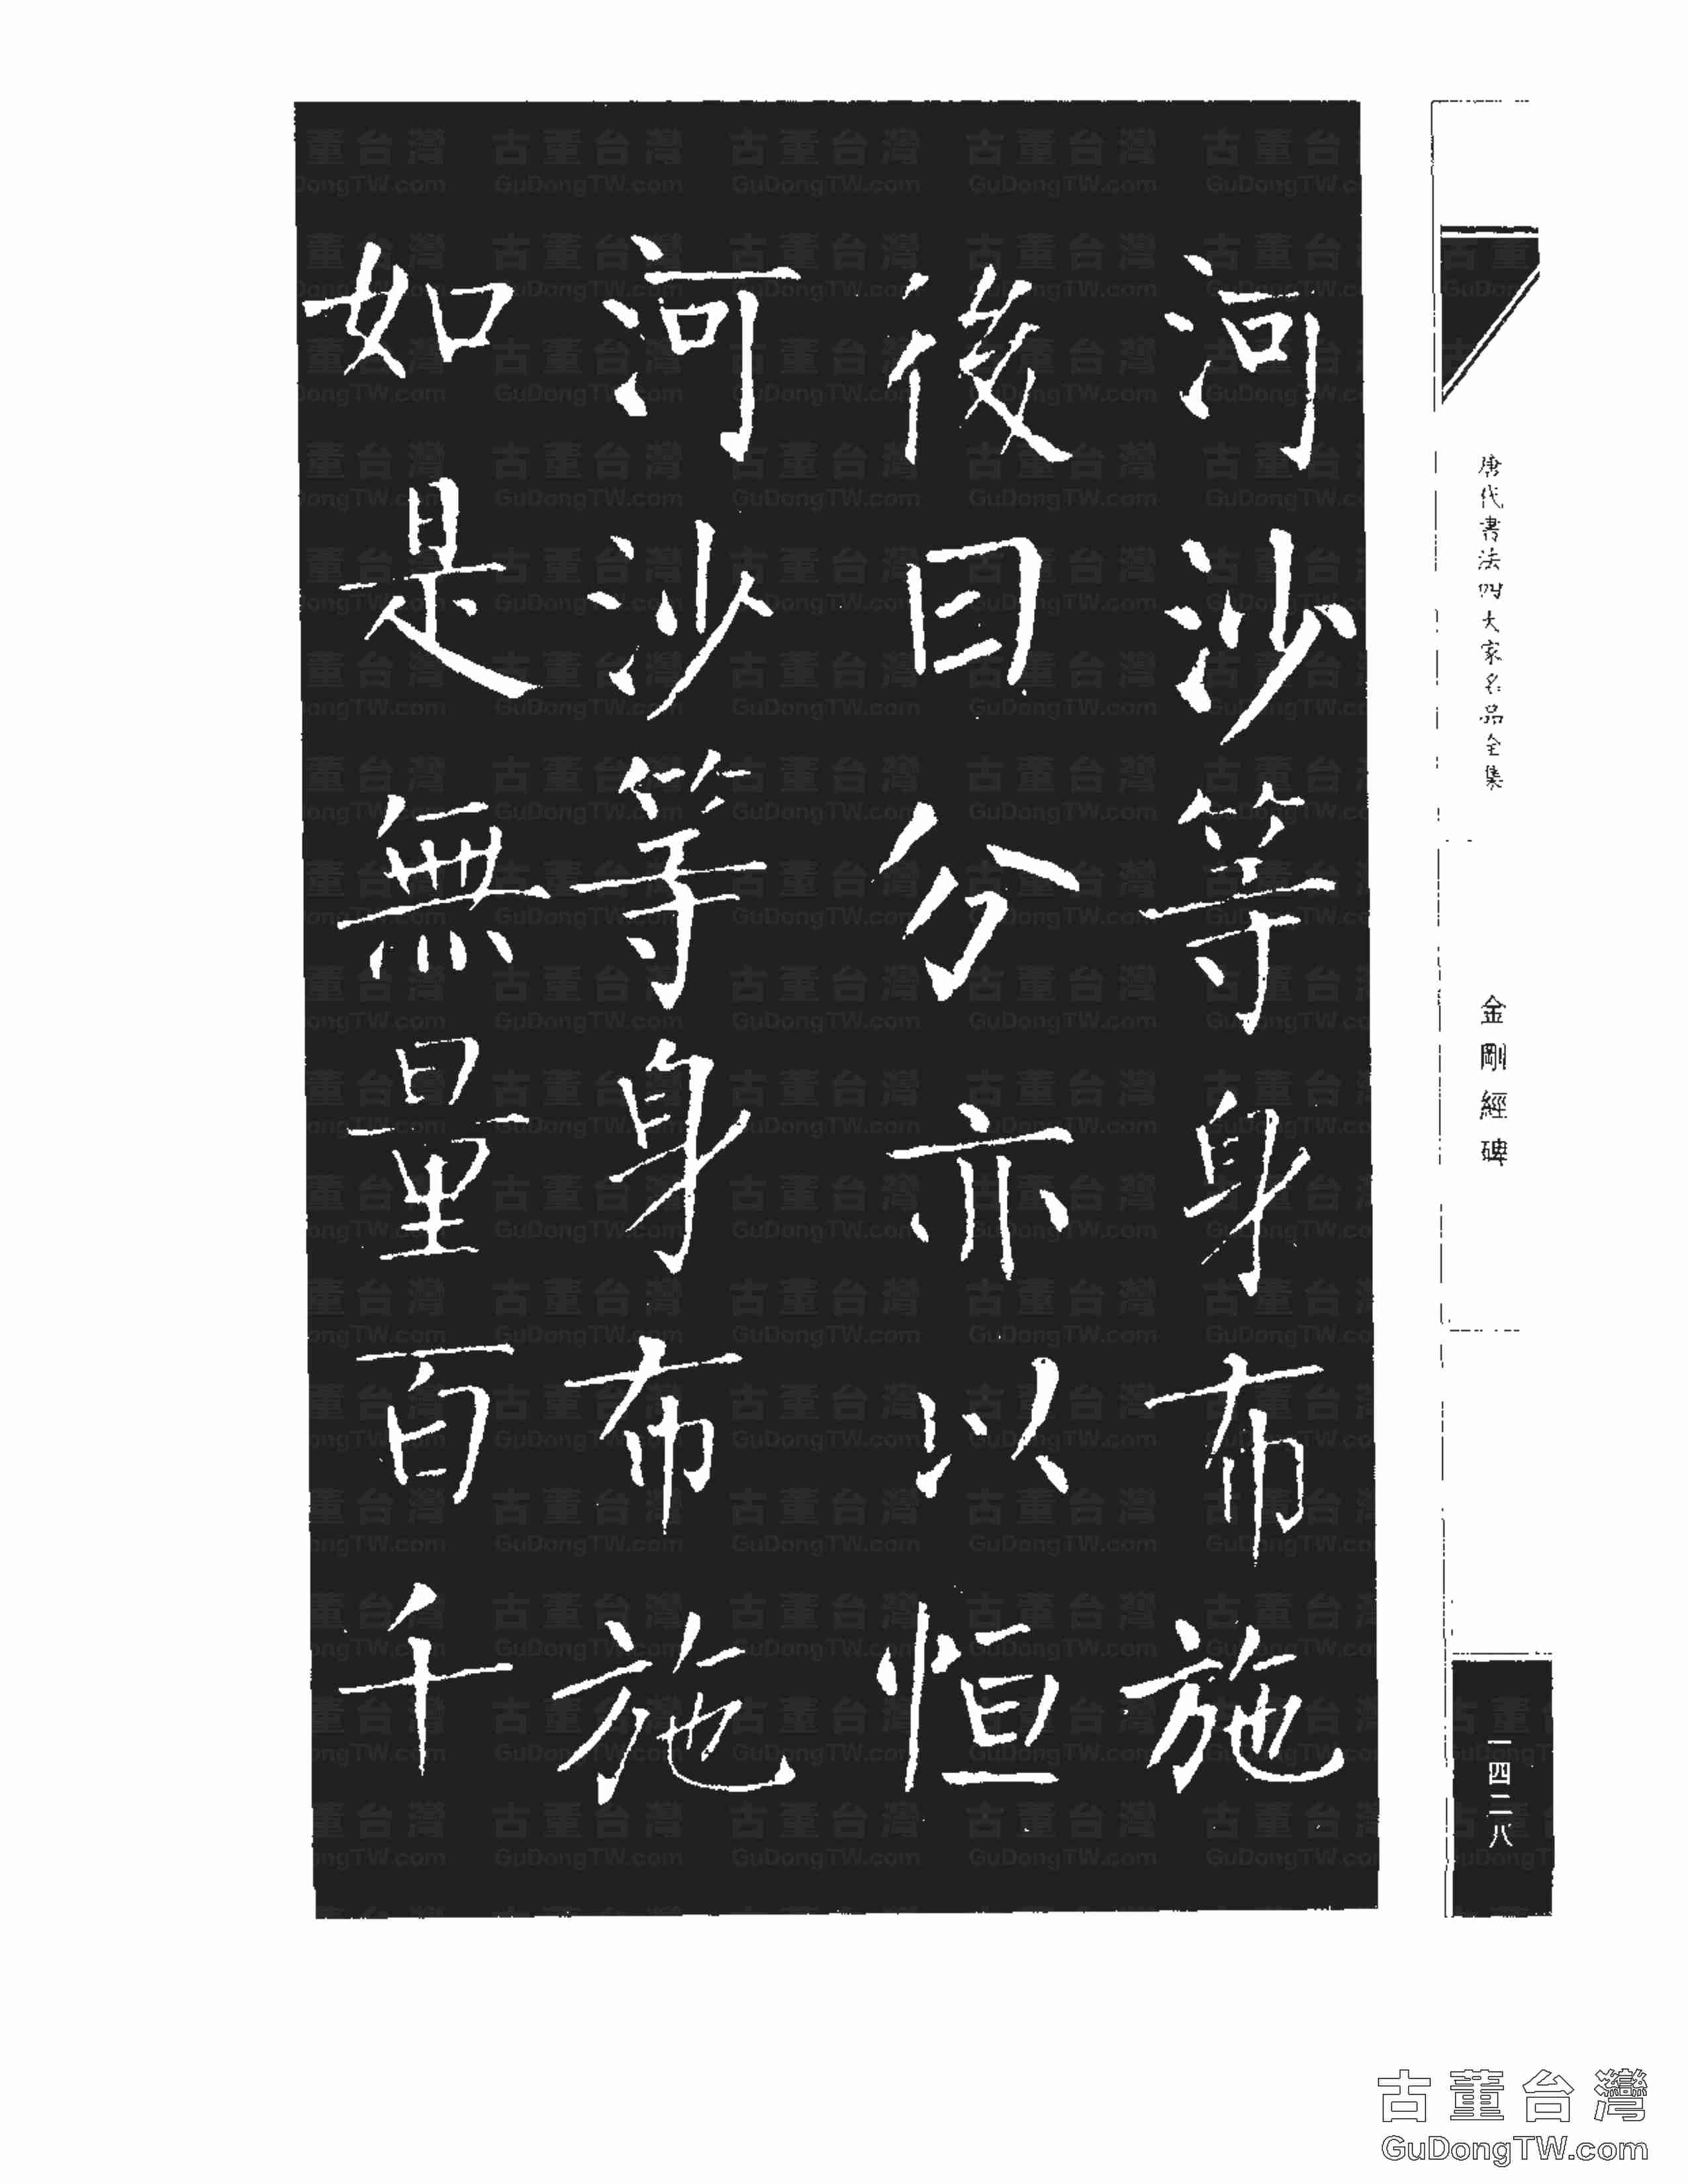 唐代書法四大家名品全集
金剛經碑
一四二八
河沙等身布施
後日分亦以恒
河沙等身布施
如是無量百千
古董台灣
GuDongTW.com